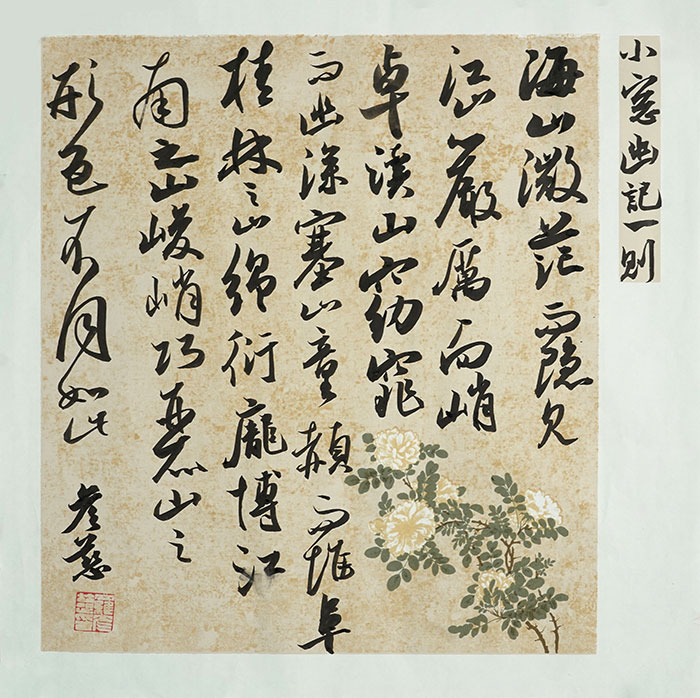 小窓幽記一則
海山微茫而隱見
江山嚴厲而峭
卓溪山窈窕
而幽深塞山童赬而堆阜
桂林之山綿衍龐博江
南之山峻峭巧麗山之
形色不同如此